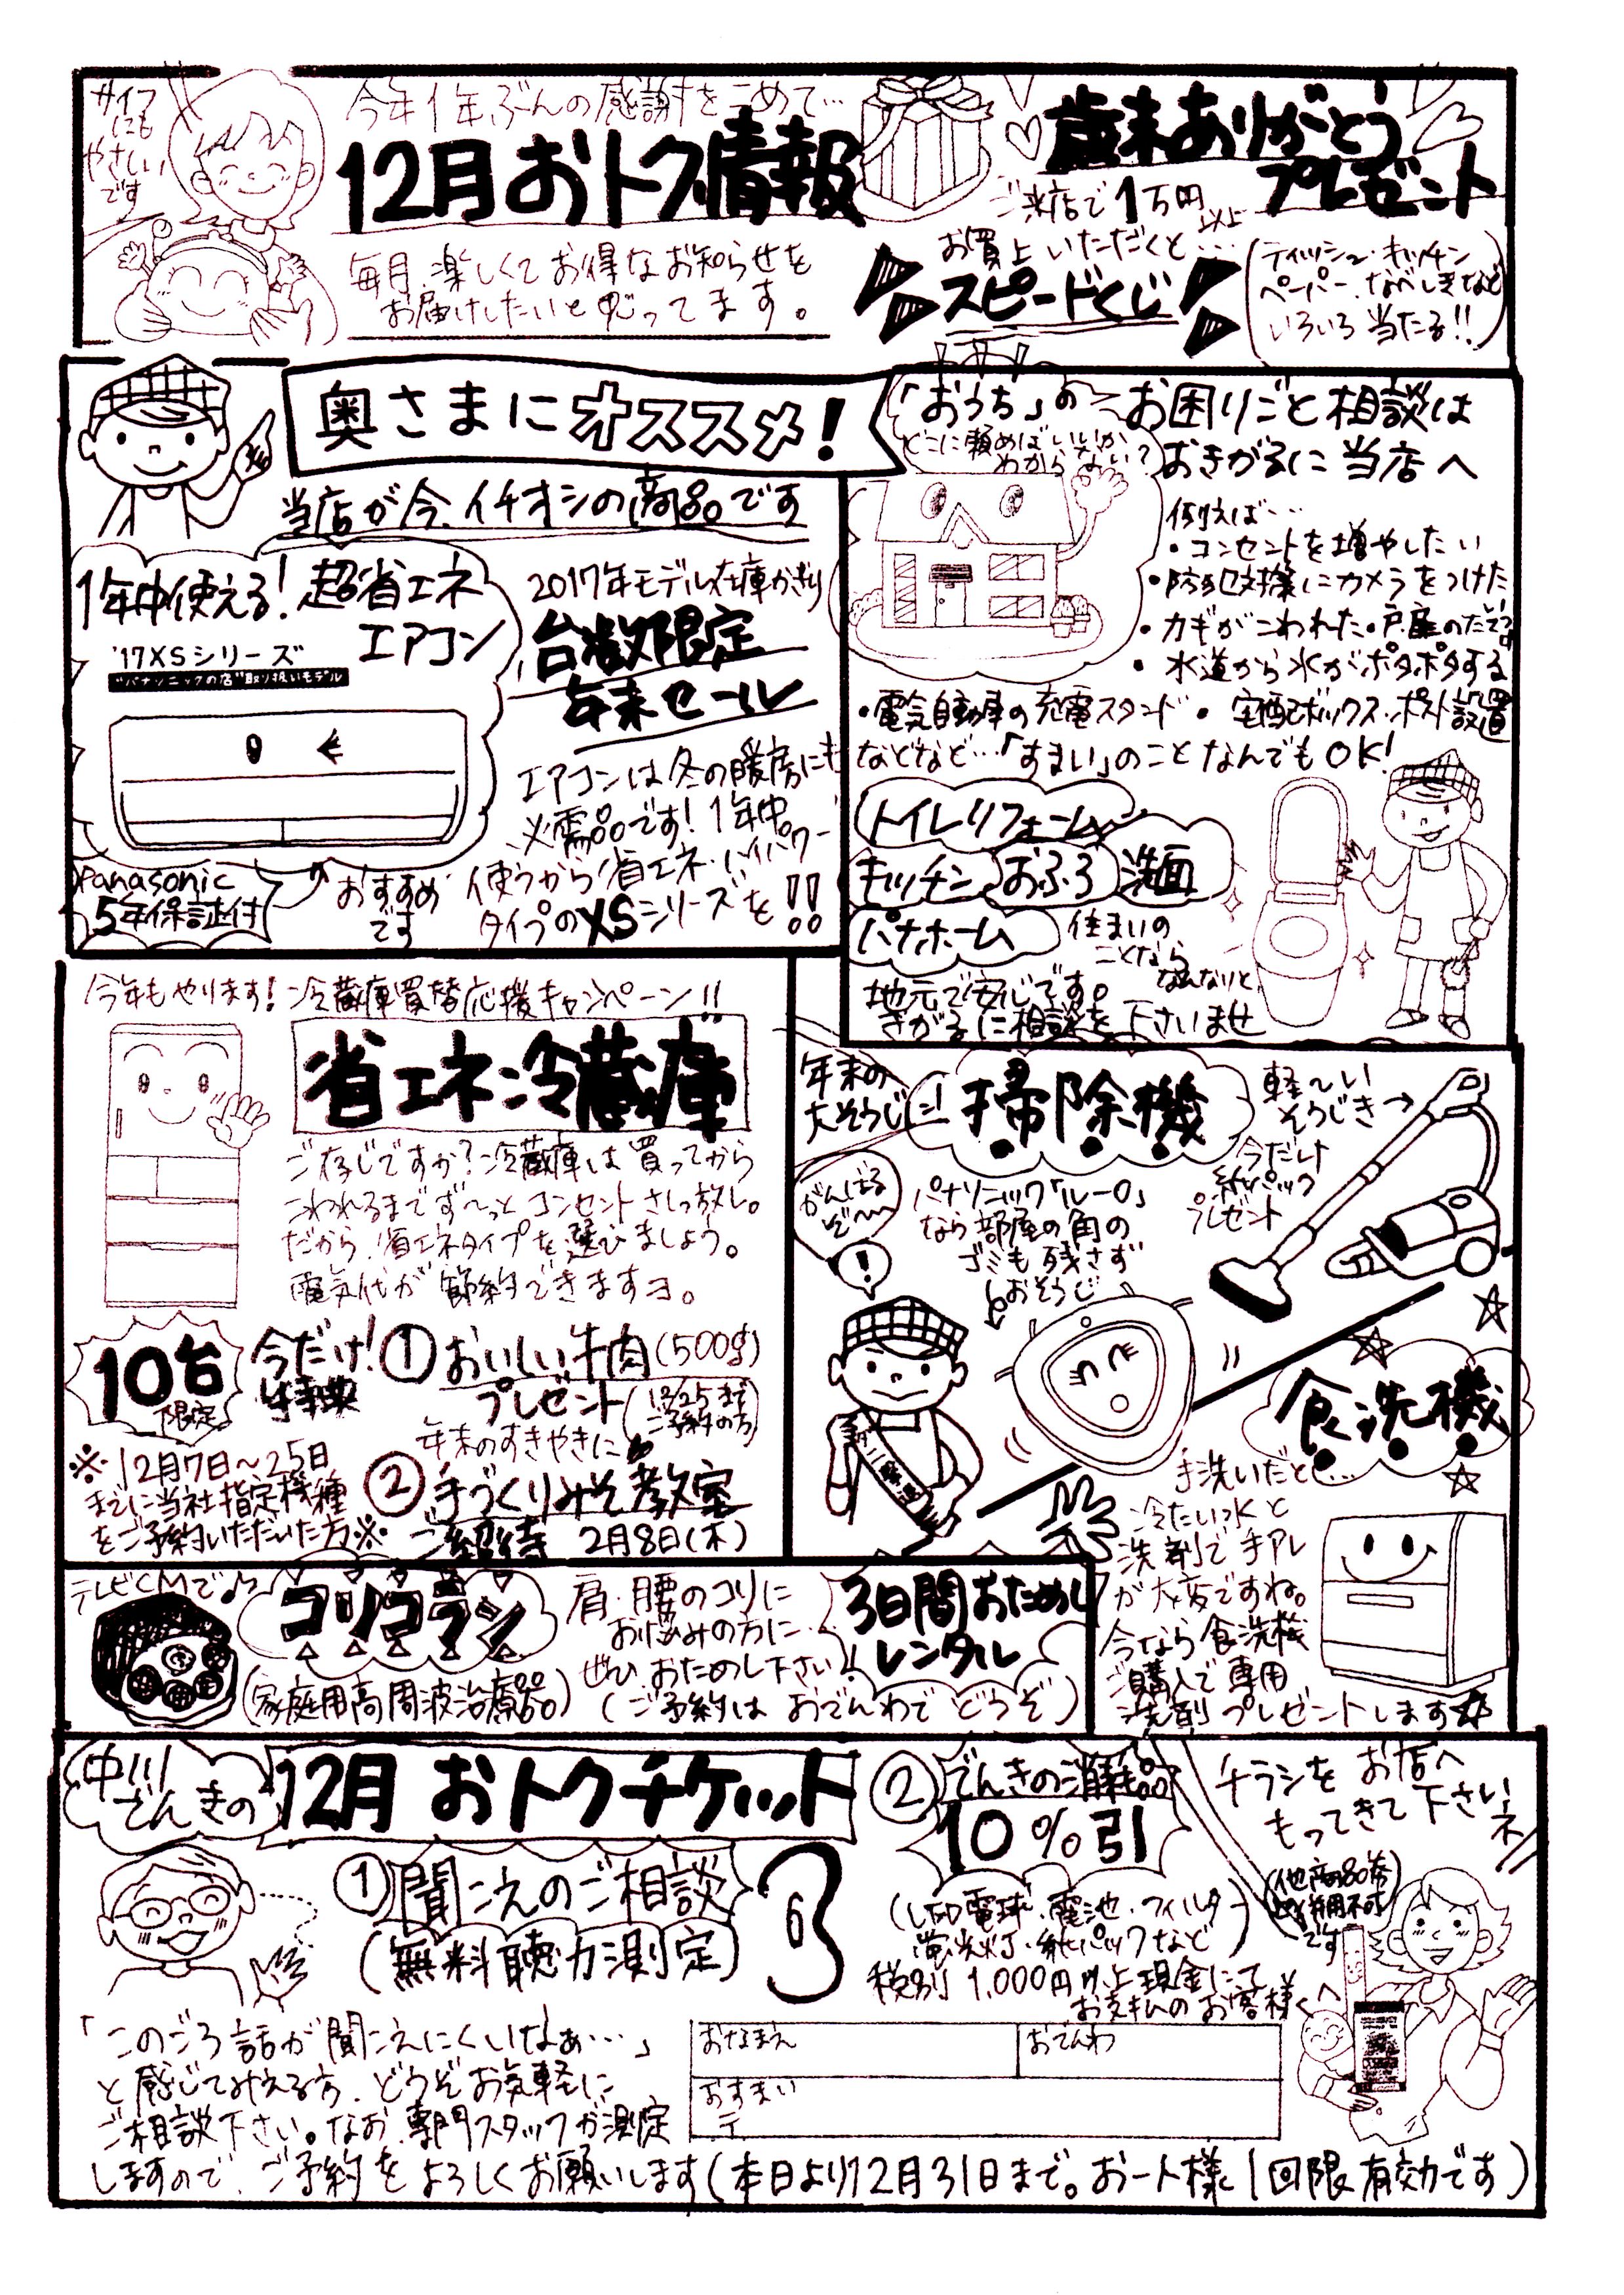 サイフ
にも
やさしい
です
今年1年ぶんの感謝をこめて…
12月おトク情報
毎月、楽しくてお得なお知らせを
お届けしたいと思ってます。
歳末ありがとう
プレゼント
ご来店で1万円以上
お買上いただくと…
スピードくじ
(ティッシュ・キッチン
ペーパー、なべしきなど
いろいろ当たる!!)
奥さまにオススメ!
当店が今、イチオシの商品です
1年中使える!超省エネ
エアコン
'17XSシリーズ
"パナソニックの店"取り扱いモデル
2017年モデル在庫かぎり
台数限定
年末セール
エアコンは冬の暖房にも
必需品です!1年中
使うから省エネ・ハイパワー
タイプのXSシリーズを!!
Panasonic
5年保証付
おすすめ
です
「おうち」のお困りごと相談は
おきがるに当店へ
どこに頼めばいいか
わからない?
例えば…
・コンセントを増やしたい
・防犯対策にカメラをつけた
・カギがこわれた・戸・扉のたてつけ
・水道から水がポタポタする
・電気自動車の充電スタンド・宅配ボックス・ポスト設置
などなど…「すまい」のことなんでもOK!
トイレリフォーム
キッチン おふろ 洗面
パナホーム
住まいの
ことなら
なんなりと
地元で安心です。
きがるに相談を下さいませ
今年もやります!冷蔵庫買替応援キャンペーン!!
省エネ冷蔵庫
ご存じですか?冷蔵庫は買ってから
こわれるまでず〜っとコンセントさしっ放し。
だから、省エネタイプを選びましょう。
電気代が節約できますヨ。
10台
限定
今だけ!
特典
①おいしい牛肉(500g)
プレゼント(12/25まで
ご予約の方)
年末のすきやきに
②手づくりみそ教室
ご招待 2月8日(木)
※12月7日〜25日
までに当社指定機種
をご予約いただいた方※
年末の
大そうじに!
掃除機
軽〜い
そうじき→
今だけ
紙パック
プレゼント
がんばる
ぞ〜
!
パナソニック「ルーロ」
なら部屋の角の
ゴミも残さず
おそうじ
食洗機
手洗いだと…
冷たい水と
洗剤で手アレ
が大変ですね。
今なら食洗機
ご購入で専用
洗剤プレゼントします☆
テレビCMで♪
コリコラン
(家庭用高周波治療器)
肩・腰のコリに
お悩みの方に
ぜひおためし下さい!
3日間おためし
レンタル
(ご予約はおでんわでどうぞ)
中川
でんきの
12月おトクチケット
①聞こえのご相談
(無料聴力測定)
「このごろ話が聞こえにくいなぁ…」
と感じてみえる方、どうぞお気軽に
ご相談下さい。なお、専門スタッフが測定
しますので、ご予約をよろしくお願いします(本日より12月31日まで。お一人様1回限有効です)
②でんきのご消耗品
10%引
(LED電球・電池・フィルター
蛍光灯・紙パックなど)
税別1,000円以上現金にて
お支払のお客様へ
チラシをお店へ
もってきて下さいネ
(他商品券
と併用不可
です)
おなまえ
おでんわ
おすまい
〒